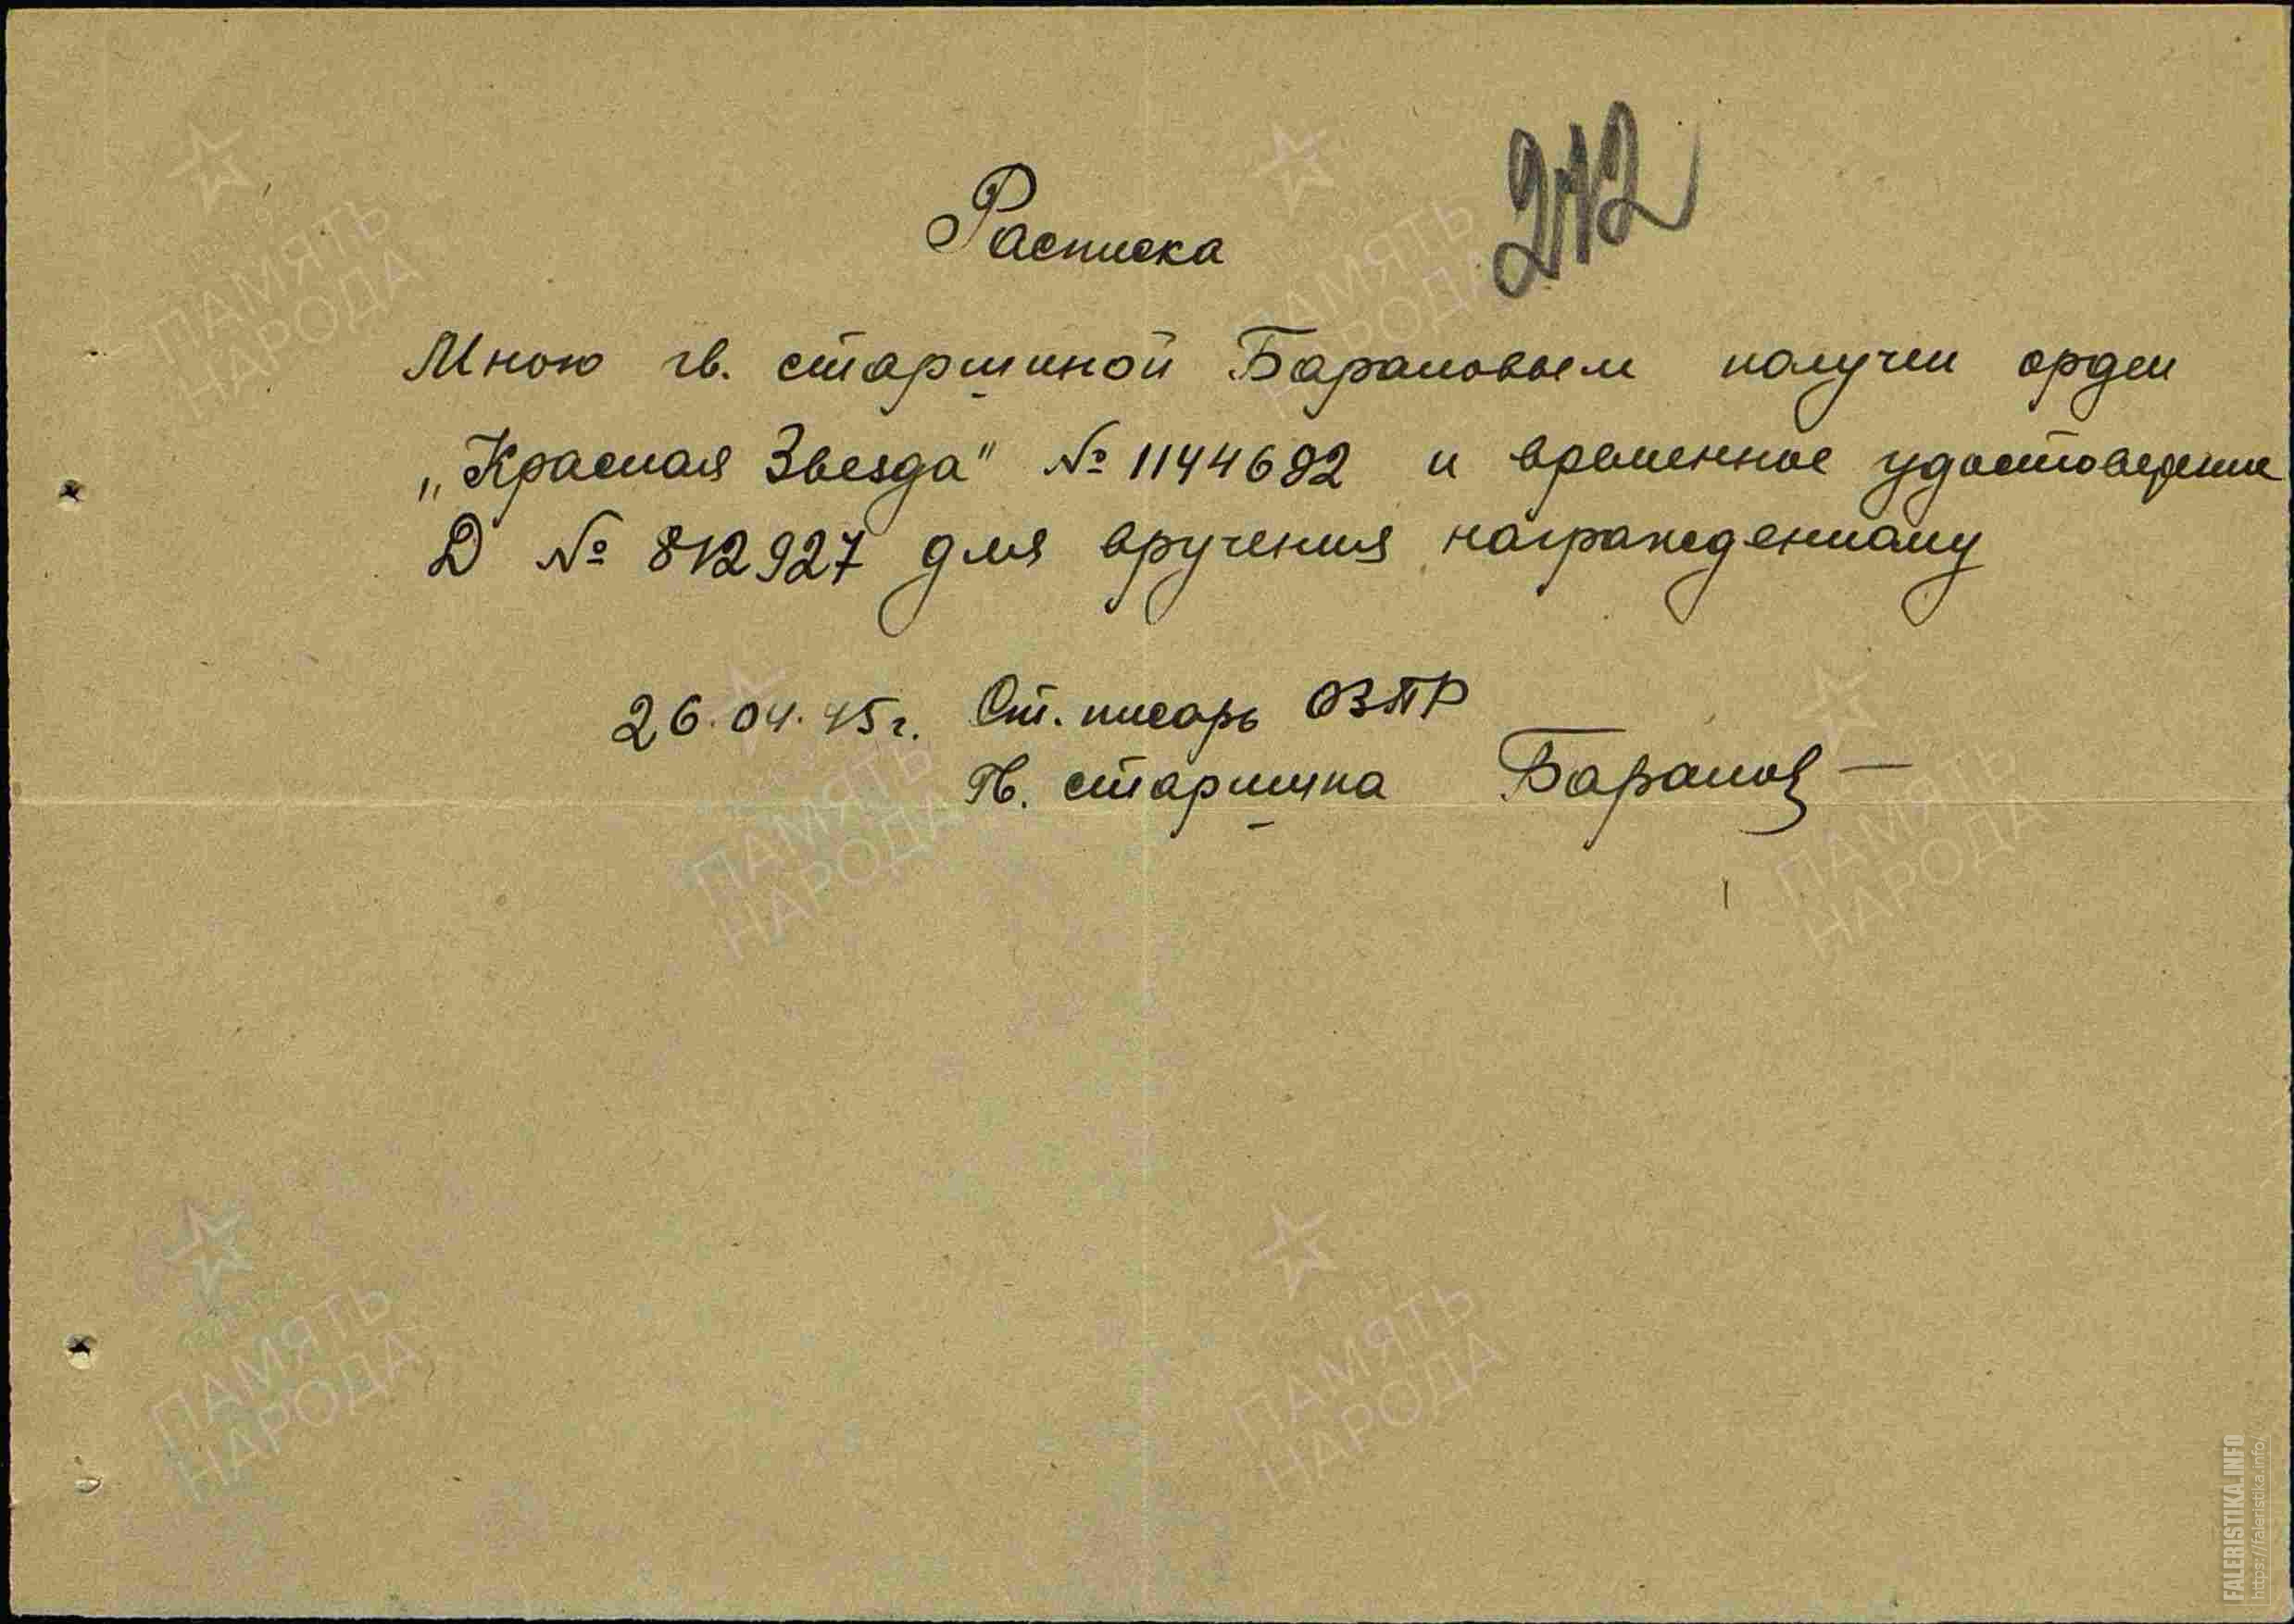 212
Расписка
Мною гв. старшиной Барановым получен орден
„Красная Звезда" № 1144692 и временное удостоверение
Д № 812927 для вручения награжденному
26.04.45 г. Ст. писарь ОВТР
Гв. старшина Баранов
ПАМЯТЬ
НАРОДА
ПАМЯТЬ
НАРОДА
ПАМЯТЬ
НАРОДА
ПАМЯТЬ
НАРОДА
ПАМЯТЬ
НАРОДА
ПАМЯТЬ
НАРОДА
FALERISTIKA.INFO
https://faleristika.info/